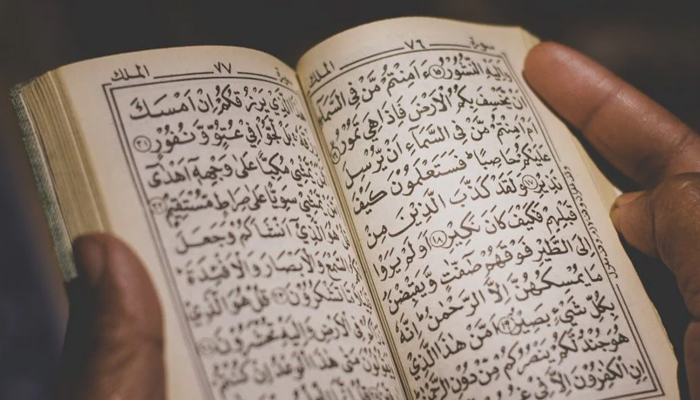 سورة ٧٦ الملك
وَاِلَيْهِ النُّشُوْرُ ١٥ ءَاَمِنْتُمْ مَّنْ فِي السَّمَآءِ
اَنْ يَّخْسِفَ بِكُمُ الْاَرْضَ فَاِذَا هِيَ تَمُوْرُ ١٦
اَمْ اَمِنْتُمْ مَّنْ فِي السَّمَآءِ اَنْ يُّرْسِلَ
عَلَيْكُمْ حَاصِبًا فَسَتَعْلَمُوْنَ كَيْفَ
نَذِيْرِ ١٧ وَلَقَدْ كَذَّبَ الَّذِيْنَ مِنْ
قَبْلِهِمْ فَكَيْفَ كَانَ نَكِيْرِ ١٨ اَوَلَمْ يَرَوْا
اِلَى الطَّيْرِ فَوْقَهُمْ صٰٓفّٰتٍ وَّيَقْبِضْنَ
مَا يُمْسِكُهُنَّ اِلَّا الرَّحْمٰنُ اِنَّهٗ
بِكُلِّ شَيْءٍ بَصِيْرٌ ١٩ اَمَّنْ هٰذَا الَّذِيْ
هُوَ جُنْدٌ لَّكُمْ يَنْصُرُكُمْ مِّنْ دُوْنِ الرَّحْمٰنِ
اِنِ الْكٰفِرُوْنَ اِلَّا فِيْ
سورة ٧٧ الملك
الَّذِيْ يَرْزُقُكُمْ اِنْ اَمْسَكَ
بَلْ لَّجُّوْا فِيْ عُتُوٍّ وَّنُفُوْرٍ ٢١
يَّمْشِيْ مُكِبًّا عَلٰى وَجْهِهٖٓ اَهْدٰىٓ
يَّمْشِيْ سَوِيًّا عَلٰى صِرَاطٍ مُّسْتَقِيْمٍ ٢٢
هُوَ الَّذِيْٓ اَنْشَاَكُمْ وَجَعَلَ
السَّمْعَ وَالْاَبْصَارَ وَالْاَفْـِٕدَةَ
مَّا تَشْكُرُوْنَ ٢٣ قُلْ هُوَ الَّذِيْ
فِي الْاَرْضِ وَاِلَيْهِ تُحْشَرُوْنَ
مَتٰى هٰذَا الْوَعْدُ اِنْ كُنْتُمْ